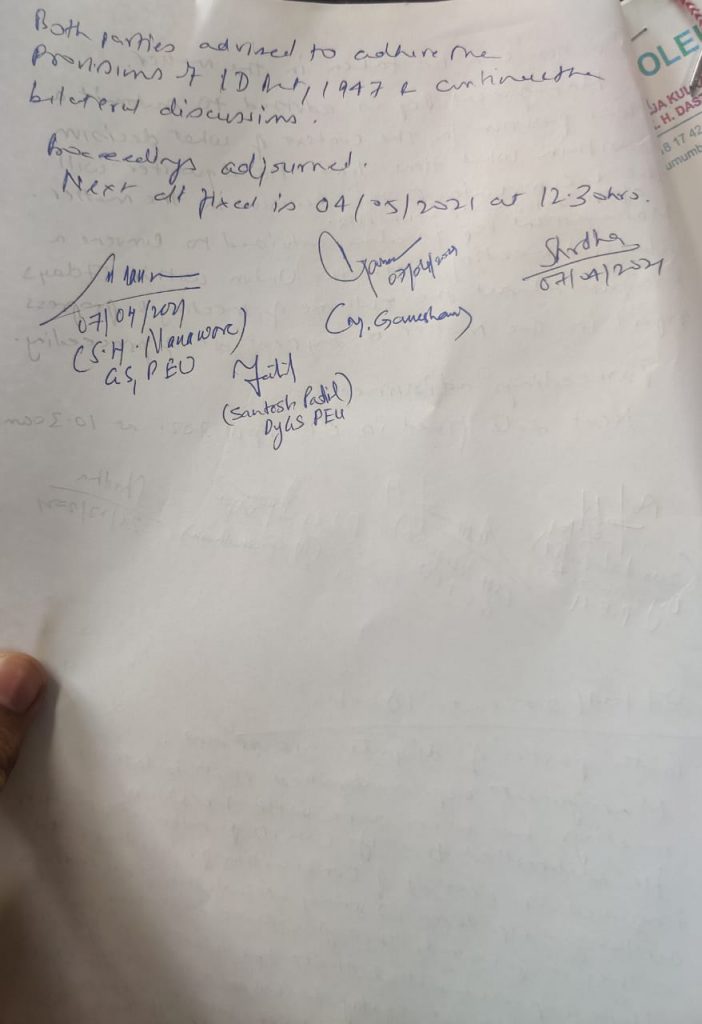 Both parties advised to adhere the
provisions of ID Act, 1947 & continue the
bilateral discussions.
Proceedings adjourned.
Next dt fixed is 04/05/2021 at 12.30hrs.
07/04/2021
(S.H. Manawore)
GS, PEU
07/04/2021
(M. Ganeshan)
Shrdha
07/04/2021
Patil
(Santosh Patil)
DyGS PEU
OLE
JA KUL
. H. DAS
8 17 42
umumb